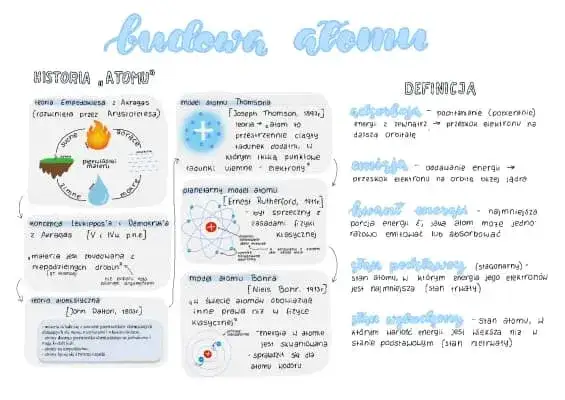 budowa atomu
HISTORIA „ATOMU"
teoria Empedoklesa z Akragas
(rozwinięta przez Arystotelesa)
suche
gorące
pierwiastki
materii
zimne
mokre
koncepcja Leukippos'a i Demokryt'a
[V i IVw. p.n.e]
materia jest zbudowana z
niepodzielnych drobin"
teoria atomistyczna
[John Dalton, 1803r.]
model atomu Thomsona
[Joseph Thomson,
teoria → „atom to
przestrzennie ciągły
ładunek dodatni, w
którym tkwią punktowe
ładunki ujemne - elektrony"
planetarny model atomu
[Ernest Rutherford, 1911r.]
- był sprzeczny z
zasadami fizyki
klasycznej
model atomu Bohra
[Niels Bohr, 1913r.]
„w świecie atomów obowiązują
inne prawa niż w fizyce
klasycznej"
- energia w atomie
jest skwantowana
- sprawdził się dla
atomu wodoru
DEFINICJA
absorbcja - pochłanianie (pobieranie)
energii z zewnątrz → przeskok elektronu na
dalszą orbitalę
emisja - oddawanie energii →
przeskok elektronu na orbitę bliżej jądra
kwant energii - najmniejsza
porcja energii E, jaką atom może jedno-
razowo emitować lub absorbować
stan podstawowy (stacjonarny) -
stan atomu, w którym energia jego elektronów
jest najmniejsza (stan trwały)
stan wzbudzony - stan atomu, w
którym wartość energii jest większa niż w
stanie podstawowym (stan nietrwały)